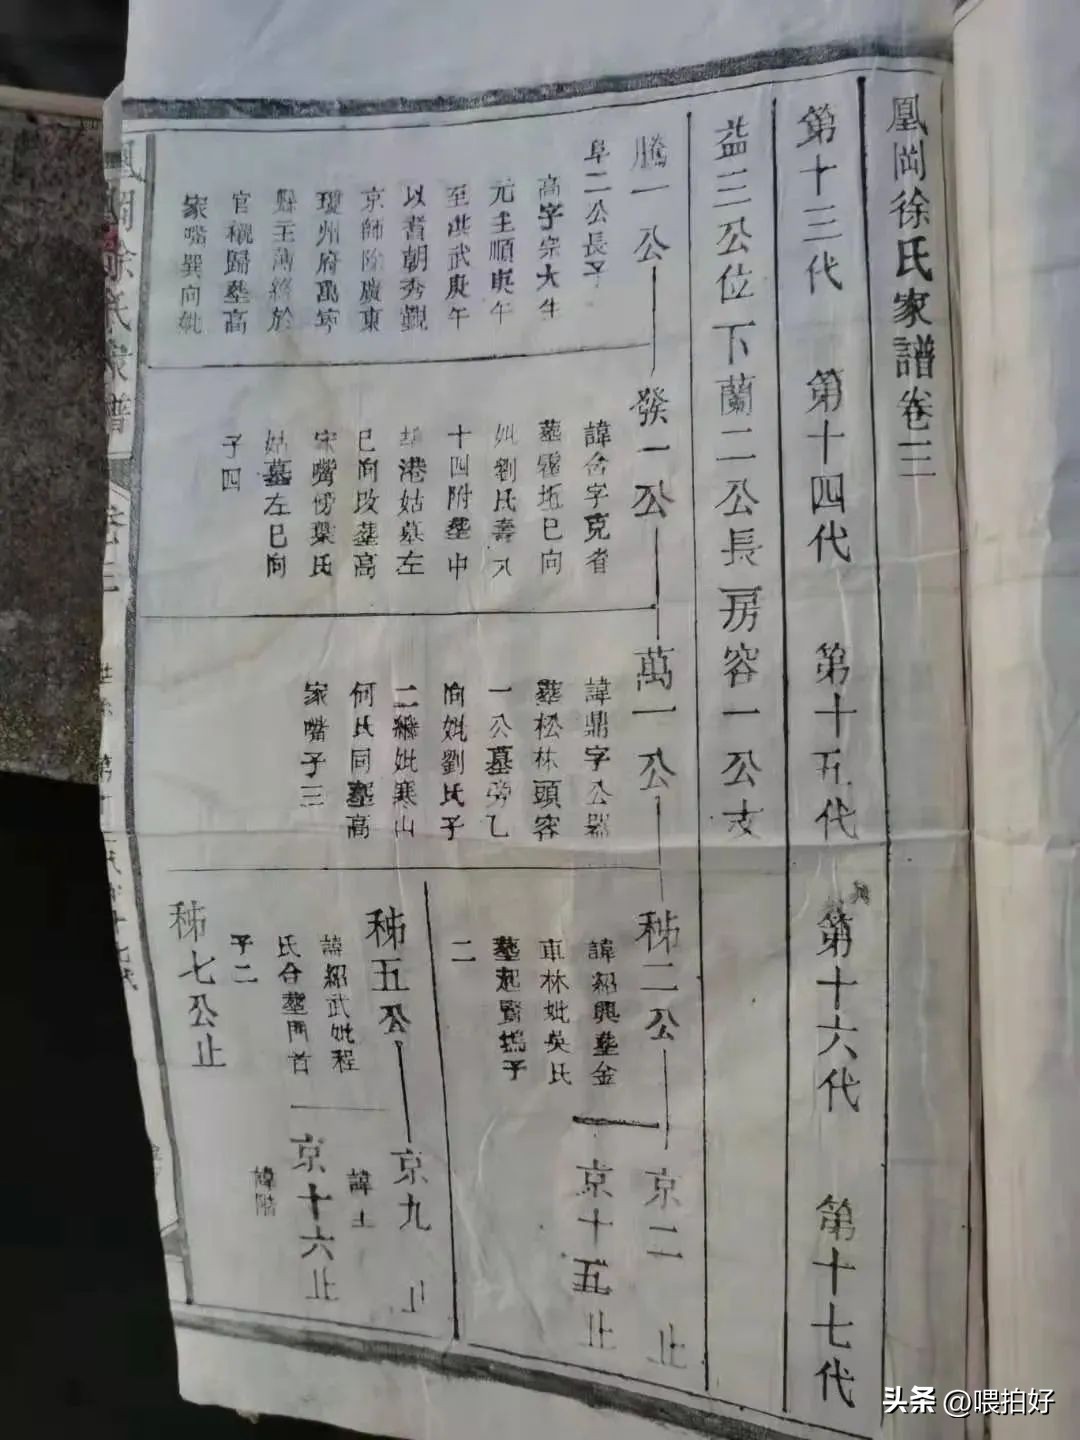 鳳岡徐氏家譜卷三
第十三代 第十四代 第十五代 第十六代 第十七代
益三公位下蘭二公長房容一公支
騰一公
阜二公長子
高字宗大生
元主順庚午
至洪武庚午
以耆朝秀觀
京師除廣東
瓊州府萬寧
縣主薄終於
官櫬歸塟高
家嘴巽向妣
發一公
諱含字克者
塟雷坵巳向
妣劉氏壽八
十四附塟中
胡港姑墓左
巳向改塟高
家嘴傍葉氏
姑墓左巳向
子四
萬一公
諱鼎字公器
塟松林頭容
一公墓旁乙
向妣劉氏子
二繼妣寒山
何氏同塟高
家嘴子三
秭二公
諱紹興塟金
車林妣吳氏
塟起賢塆子
二
京二 止
京十五止
秭五公
諱紹武妣程
氏合塟門首
子二
京九 止
諱土
京十六止
諱階
秭七公止
鳳岡徐氏家譜 卷三
头条 @喂拍好